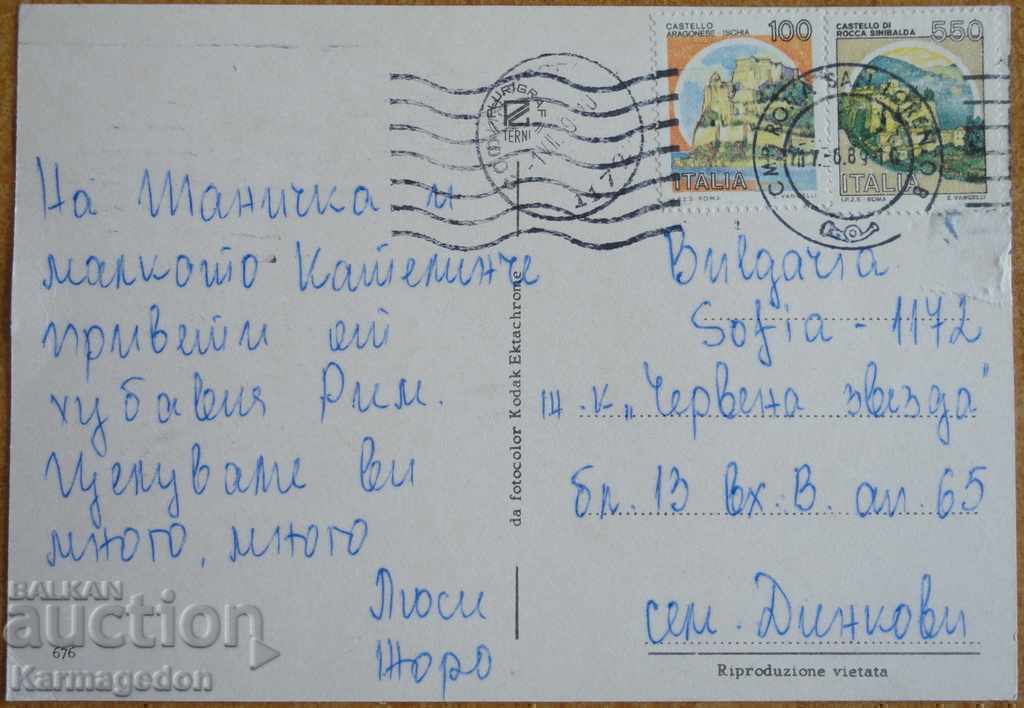 На Шаничка и
малкото Кателинче
привети от
хубавия Рим.
Целуваме ви
много, много
Люси
Жоро
676
da fotocolor Kodak Ektachrome
PLURIGRAF
TERNI
CASTELLO
ARAGONESE - ISCHIA
100
ITALIA
I.P.Z.S. ROMA
E. VANGELLI
CASTELLO DI
ROCCA SINIBALDA
550
ITALIA
I.P.Z.S. - ROMA
E. VANGELLI
CMP ROMA SAN LORENZO
Bulgaria
Sofia - 1172
ж.к „Червена звезда"
бл. 13 вх. В. ап. 65
сем. Динкови
Riproduzione vietata
BALKAN
auction
Karmagedon